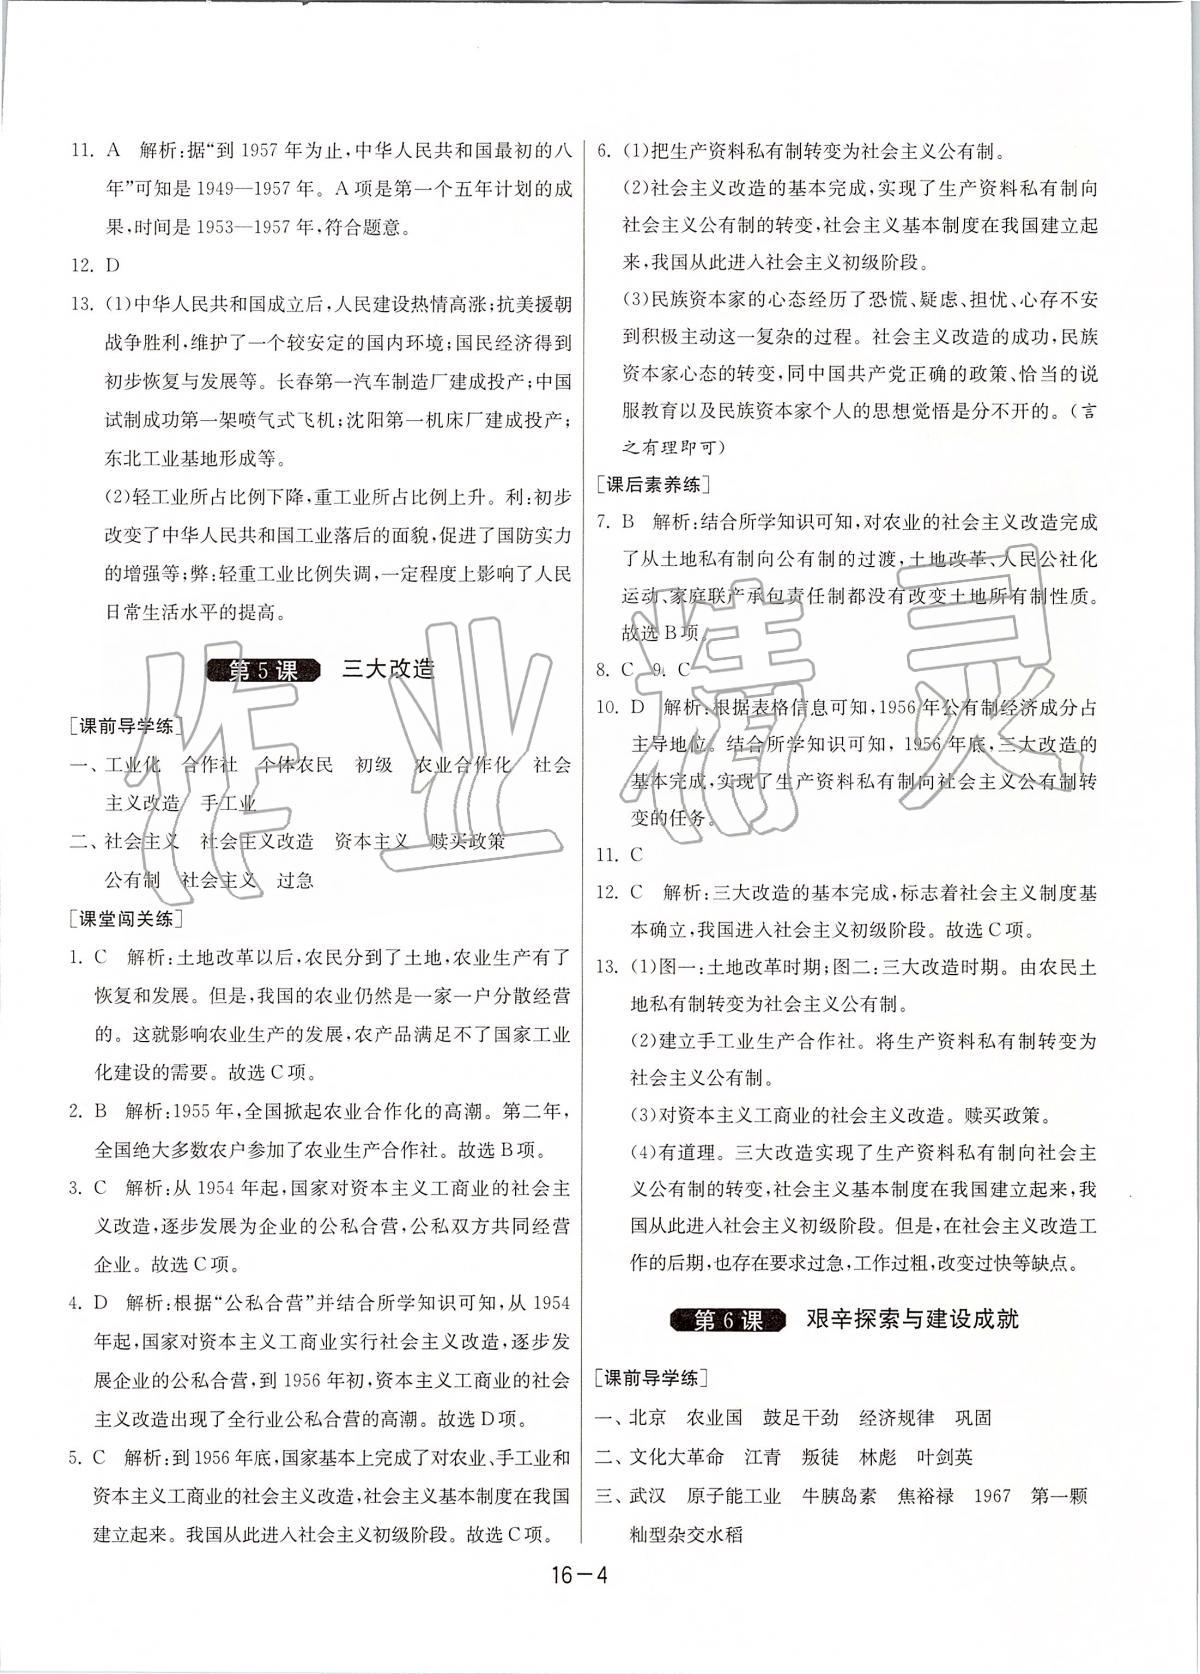 11. A　解析:据“到 1957 年为止,中华人民共和国最初的八
年”可知是 1949—1957 年。A 项是第一个五年计划的成
果,时间是 1953—1957 年,符合题意。
12. D
13. (1)中华人民共和国成立后,人民建设热情高涨;抗美援朝
战争胜利,维护了一个较安定的国内环境;国民经济得到
初步恢复与发展等。长春第一汽车制造厂建成投产;中国
试制成功第一架喷气式飞机;沈阳第一机床厂建成投产;
东北工业基地形成等。
(2)轻工业所占比例下降,重工业所占比例上升。利:初步
改变了中华人民共和国工业落后的面貌,促进了国防实力
的增强等;弊:轻重工业比例失调,一定程度上影响了人民
日常生活水平的提高。
第 5 课　三大改造
[课前导学练]
一、工业化　合作社　个体农民　初级　农业合作化　社会
主义改造　手工业
二、社会主义　社会主义改造　资本主义　赎买政策
公有制　社会主义　过急
[课堂闯关练]
1. C　解析:土地改革以后,农民分到了土地,农业生产有了
恢复和发展。但是,我国的农业仍然是一家一户分散经营
的。这就影响农业生产的发展,农产品满足不了国家工业
化建设的需要。故选 C 项。
2. B　解析:1955 年,全国掀起农业合作化的高潮。第二年,
全国绝大多数农户参加了农业生产合作社。故选 B 项。
3. C　解析:从 1954 年起,国家对资本主义工商业的社会主
义改造,逐步发展为企业的公私合营,公私双方共同经营
企业。故选 C 项。
4. D　解析:根据“公私合营”并结合所学知识可知,从 1954
年起,国家对资本主义工商业实行社会主义改造,逐步发
展企业的公私合营,到 1956 年初,资本主义工商业的社会
主义改造出现了全行业公私合营的高潮。故选 D 项。
5. C　解析:到 1956 年底,国家基本上完成了对农业、手工业和
资本主义工商业的社会主义改造,社会主义基本制度在我国
建立起来。我国从此进入社会主义初级阶段。故选 C 项。
6. (1)把生产资料私有制转变为社会主义公有制。
(2)社会主义改造的基本完成,实现了生产资料私有制向
社会主义公有制的转变,社会主义基本制度在我国建立起
来,我国从此进入社会主义初级阶段。
(3)民族资本家的心态经历了恐慌、疑虑、担忧、心存不安
到积极主动这一复杂的过程。社会主义改造的成功,民族
资本家心态的转变,同中国共产党正确的政策、恰当的说
服教育以及民族资本家个人的思想觉悟是分不开的。(言
之有理即可)
[课后素养练]
7. B　解析:结合所学知识可知,对农业的社会主义改造完成
了从土地私有制向公有制的过渡,土地改革、人民公社化
运动、家庭联产承包责任制都没有改变土地所有制性质。
故选 B 项。
8. C　9. C
10. D　解析:根据表格信息可知,1956 年公有制经济成分占
主导地位。结合所学知识可知,1956 年底,三大改造的
基本完成,实现了生产资料私有制向社会主义公有制转
变的任务。
11. C
12. C　解析:三大改造的基本完成,标志着社会主义制度基
本确立,我国进入社会主义初级阶段。故选 C 项。
13. (1)图一:土地改革时期;图二:三大改造时期。由农民土
地私有制转变为社会主义公有制。
(2)建立手工业生产合作社。将生产资料私有制转变为
社会主义公有制。
(3)对资本主义工商业的社会主义改造。赎买政策。
(4)有道理。三大改造实现了生产资料私有制向社会主
义公有制的转变,社会主义基本制度在我国建立起来,我
国从此进入社会主义初级阶段。但是,在社会主义改造工
作的后期,也存在要求过急,工作过粗,改变过快等缺点。
第 6 课　艰辛探索与建设成就
[课前导学练]
一、北京　农业国　鼓足干劲　经济规律　巩固
二、文化大革命　江青　叛徒　林彪　叶剑英
三、武汉　原子能工业　牛胰岛素　焦裕禄　1967　第一颗
籼型杂交水稻
16－4
作业精灵